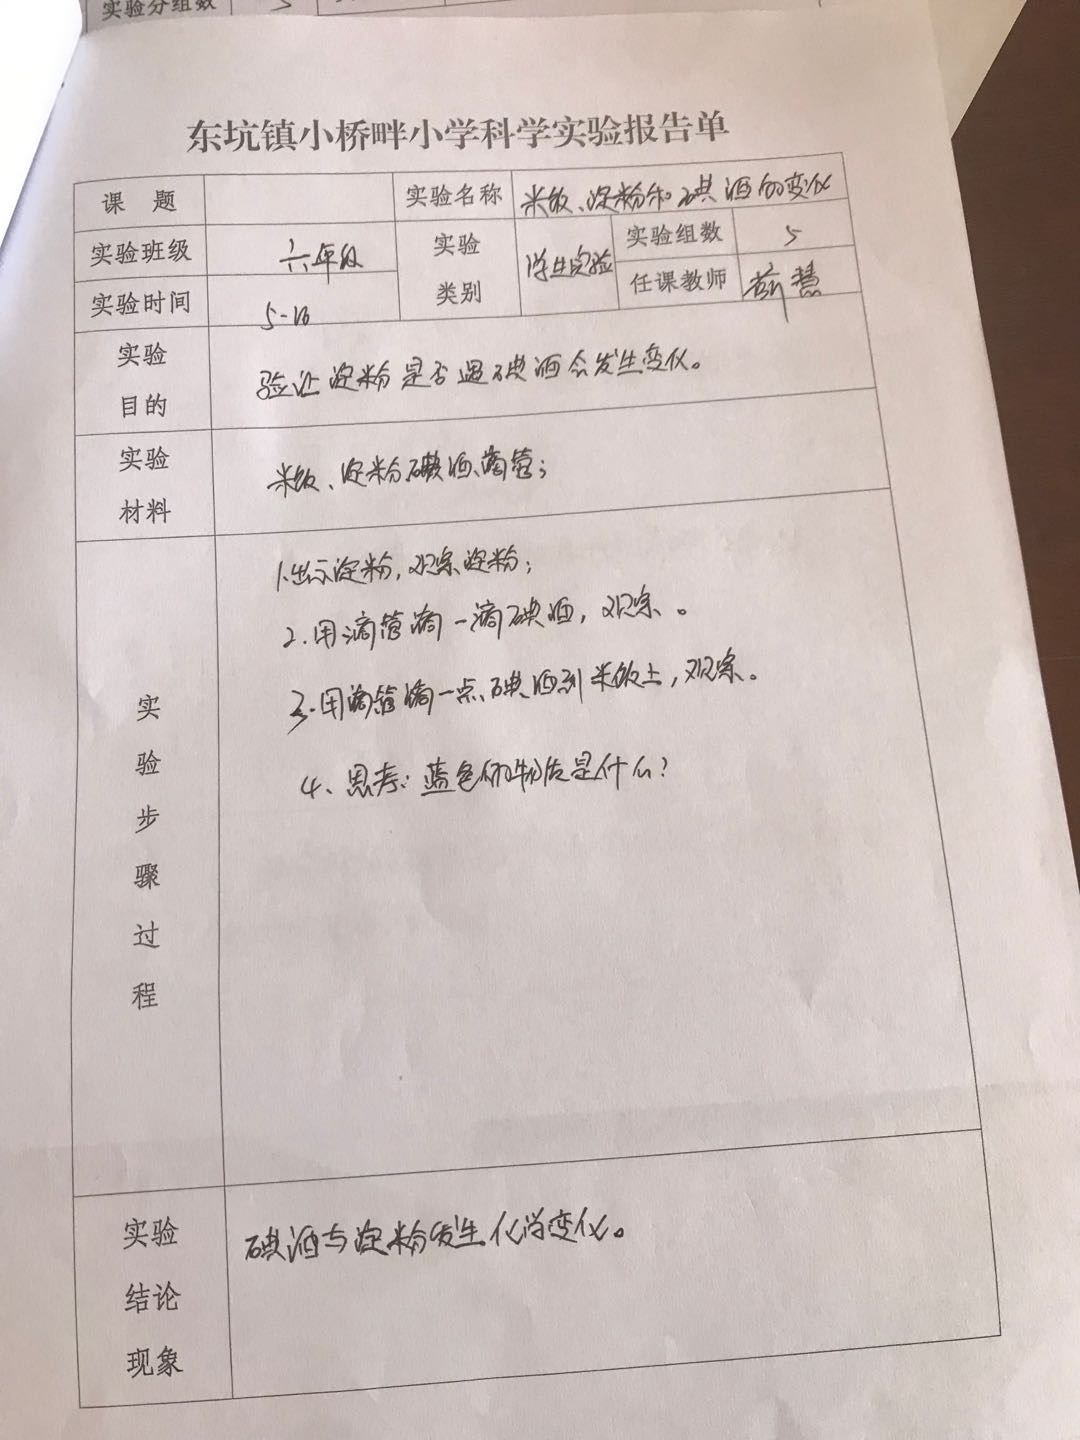 实验分组数 5
东坑镇小桥畔小学科学实验报告单
课 题 实验名称 米饭、淀粉和碘酒的变化
实验班级 六年级 实验类别 学生实验 实验组数 5
实验时间 5-16 任课教师 慧
实验目的 验证淀粉是否遇碘酒会发生变化。
实验材料 米饭、淀粉、碘酒、滴管;
实验步骤过程
1.出示淀粉,观察淀粉;
2.用滴管滴一滴碘酒,观察。
3.用滴管滴一点碘酒到米饭上,观察。
4、思考:蓝色的物质是什么?
实验结论现象 碘酒与淀粉发生化学变化。